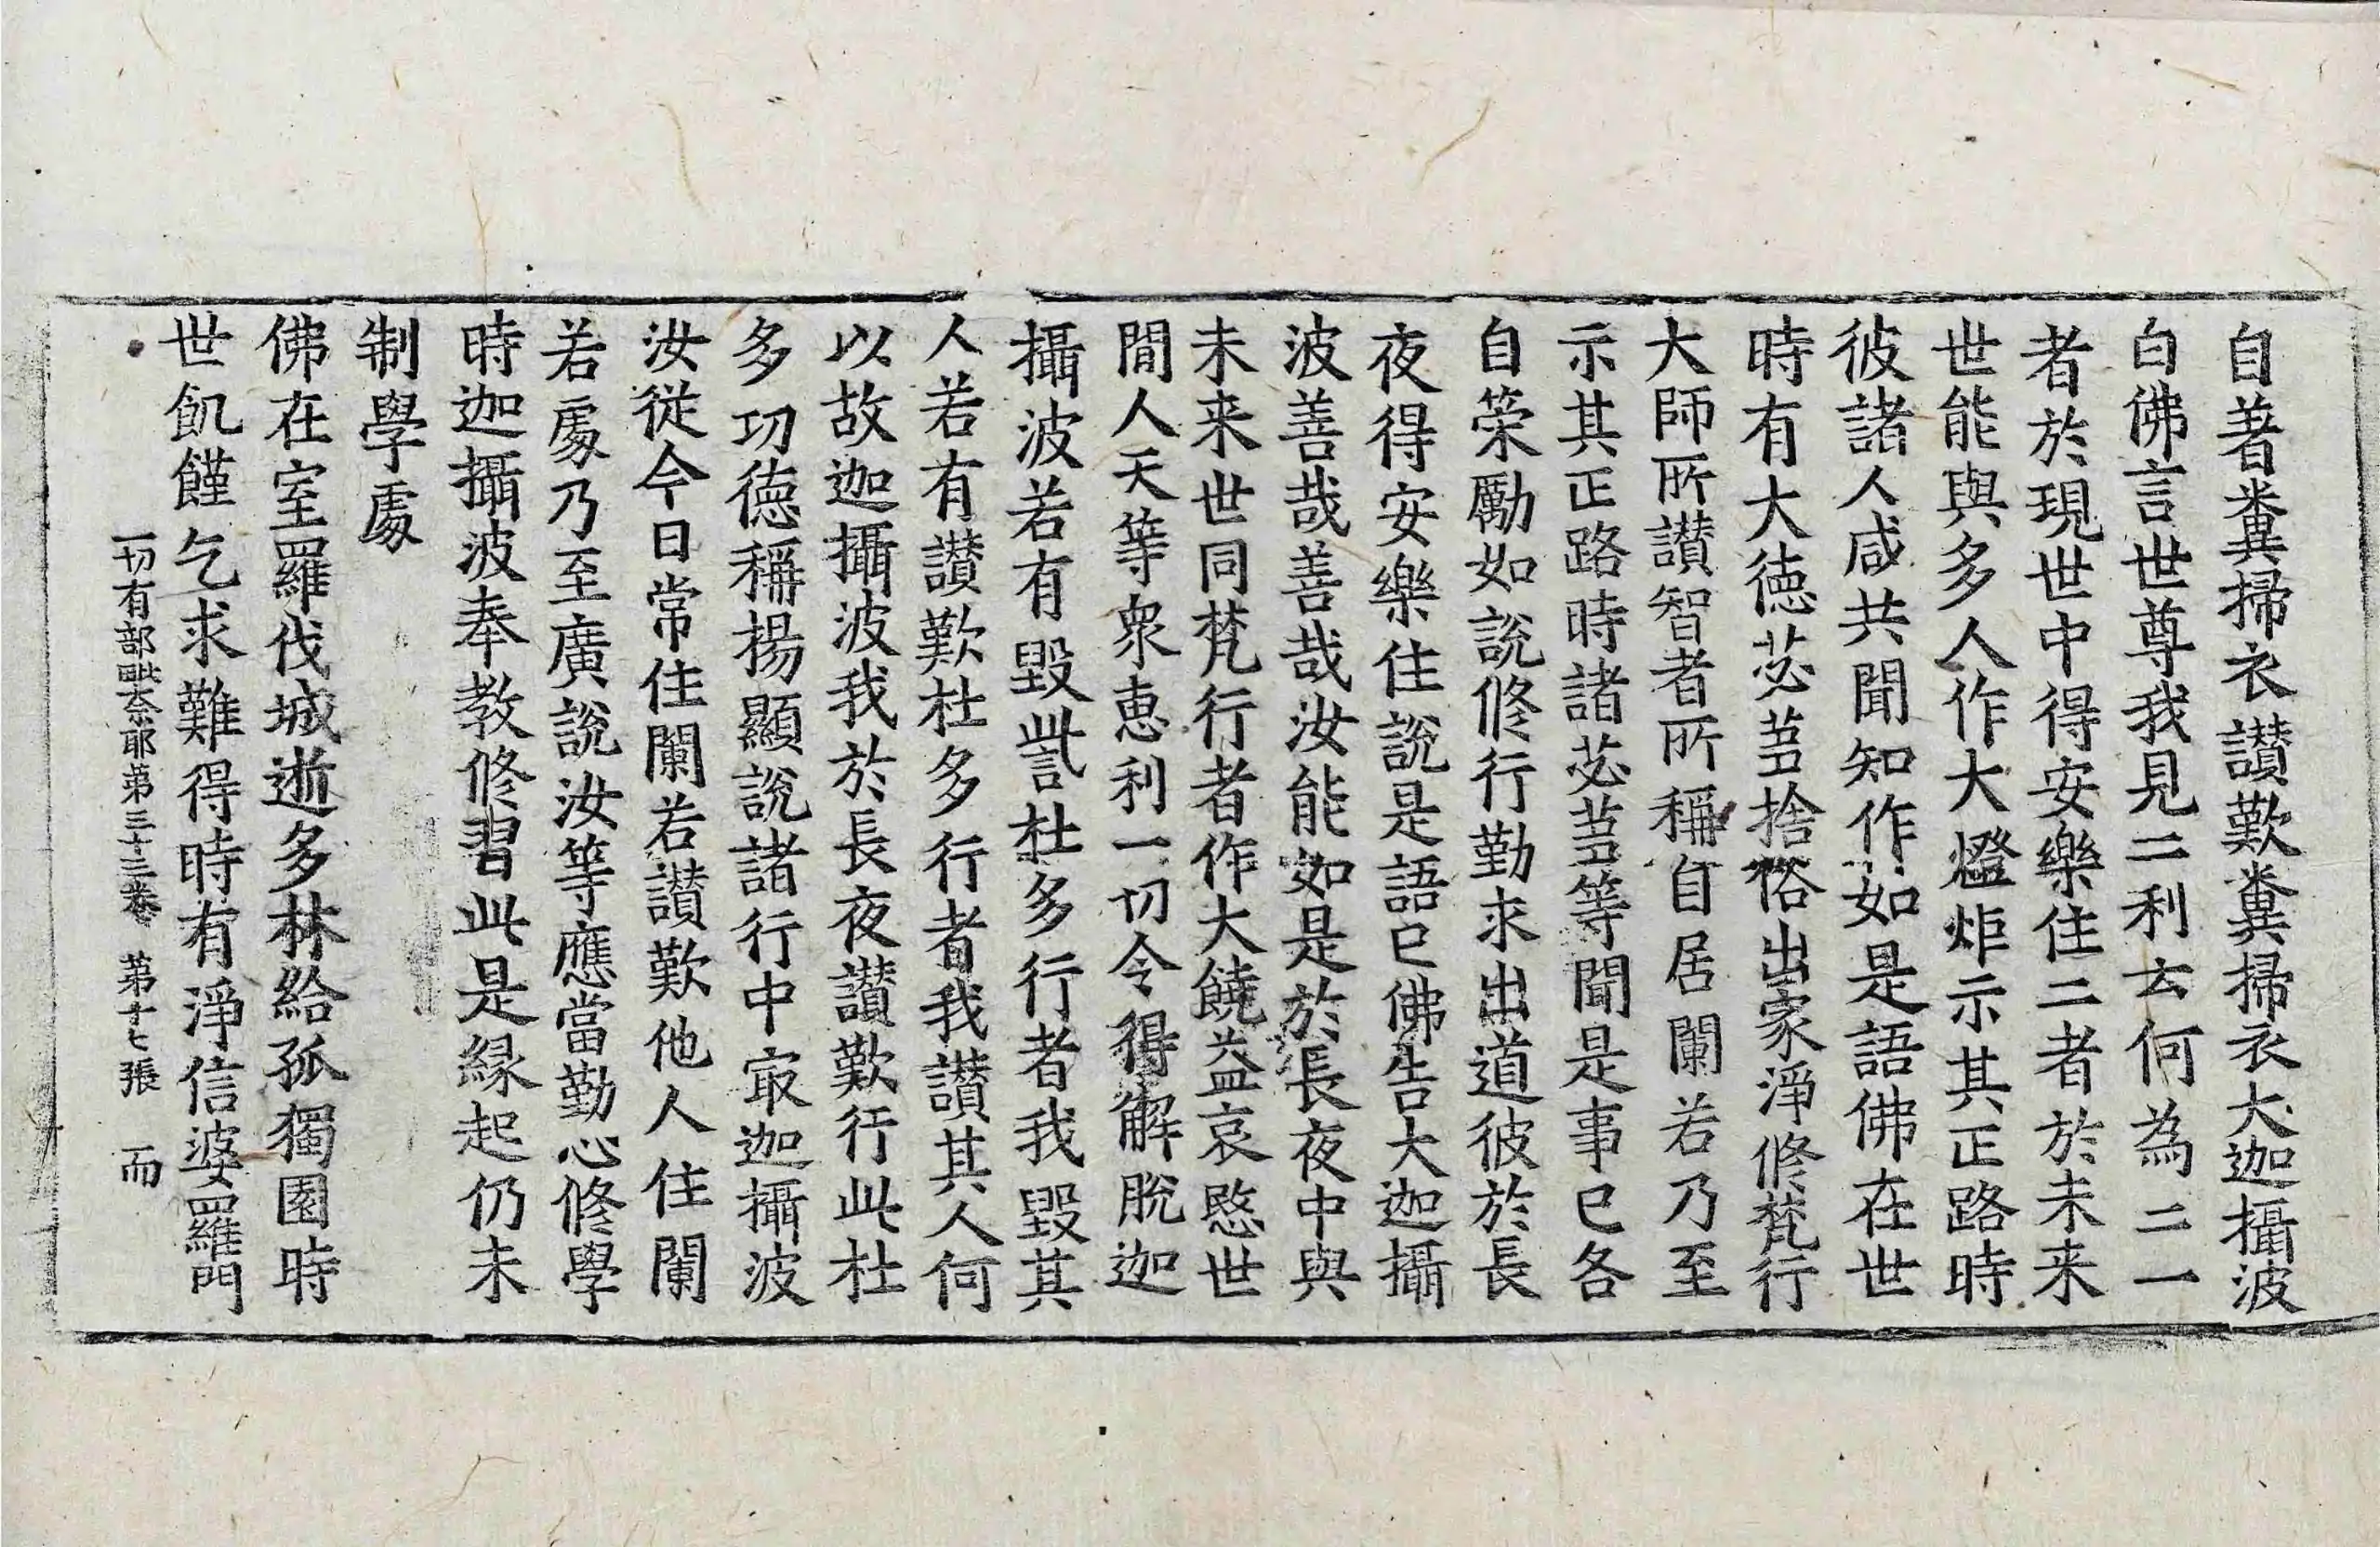 自著糞掃衣讃歎糞掃衣大迦攝波
白佛言世尊我見二利云何為二一
者於現世中得安樂住二者於未来
世能與多人作大燈炬示其正路時
彼諸人咸共聞知作如是語佛在世
時有大德苾芻捨俗出家淨修梵行
大師所讃智者所稱自居闌若乃至
示其正路時諸苾芻等聞是事已各
自策勵如說修行勤求出道彼於長
夜得安樂住說是語已佛告大迦攝
波善哉善哉汝能如是於長夜中與
未来世同梵行者作大饒益哀愍世
閒人天等衆恵利一切令得解脫迦
攝波若有毀訾杜多行者我毀其
人若有讃歎杜多行者我讃其人何
以故迦攝波我於長夜讃歎行此杜
多功德稱揚顯說諸行中㝡迦攝波
汝從今日常住闌若讃歎他人住闌
若處乃至廣說汝等應當勤心修學
時迦攝波奉教修習此是緣起仍未
制學處
佛在室羅伐城逝多林給孤獨園時
世飢饉乞求難得時有淨信婆羅門
一切有部毗奈耶第三十三卷　第十七張　而